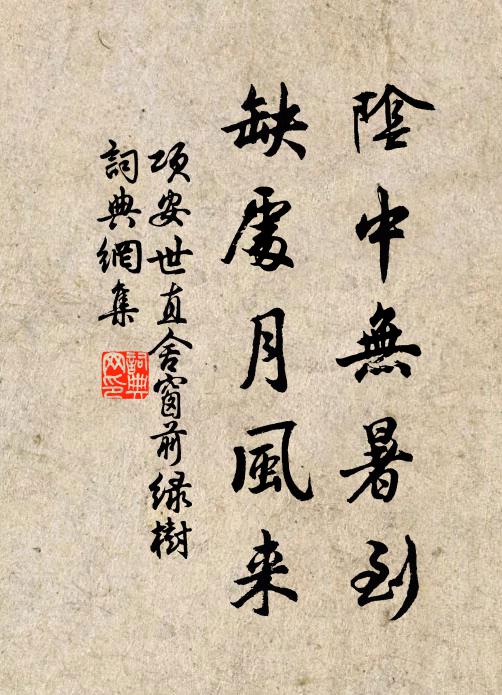 陰中無暑到
缺處月風来
項安世直舍窗前緑樹
詞典網集
詞典網印